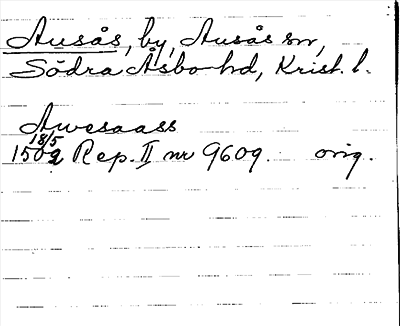 Ausås, by, Ausås sn,
Södra Åsbo hd, Krist. l.
Awesaass
18/5
1502 Rep. II nr 9609. orig.